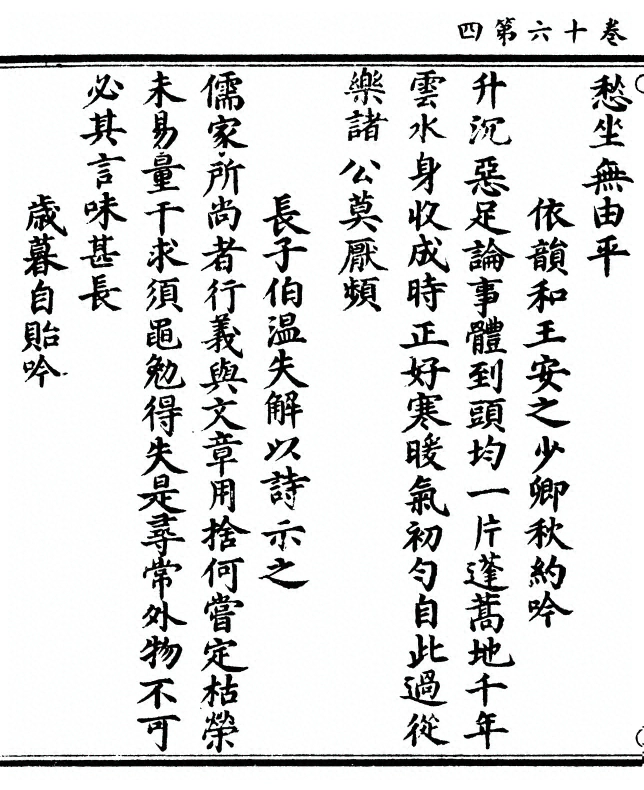 卷十六第四
愁坐無由平
依韻和王安之少卿秋約吟
升沉惡足論事體到頭均一片蓬蒿地千年
雲水身收成時正好寒暖氣初勻自此過從
樂諸公莫厭頻
長子伯温失解以詩示之
儒家所尚者行義與文章用捨何嘗定枯榮
未易量干求須黽勉得失是尋常外物不可
必其言味甚長
歲暮自貽吟